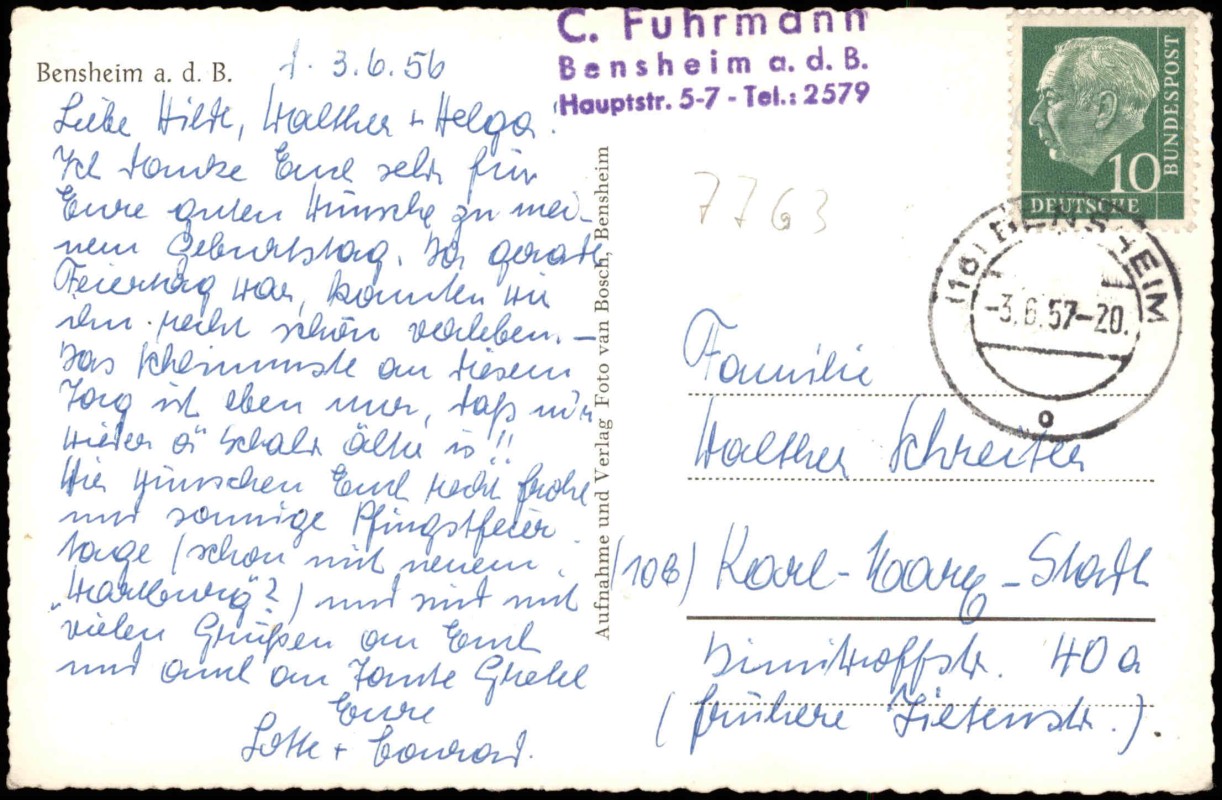 Bensheim a. d. B.
1. 3.6.56
Liebe Hilde, Walther + Helga!
Ich danke Euch sehr für
Eure guten Wünsche zu mei-
nem Geburtstag. Da gerade
Feiertag war, konnten wir
ihn recht schön verleben. —
Das Schlimmste an diesem
Tag ist eben nur, daß mir
wieder a Schalr älter is!!
Wir wünschen Euch recht frohe
und sonnige Pfingstfeier-
tage (schon mit neuem
„Wartburg"?) und sind mit
vielen Grüßen an Euch
und auch an Tante Gretel
Eure
Lotte + Conrad.
Aufnahme und Verlag Foto van Bosch, Bensheim
C. Fuhrmann
Bensheim a. d. B.
Hauptstr. 5-7 - Tel.: 2579
7763
10
DEUTSCHE
BUNDESPOST
(16) BENSHEIM
-3.6.57-20.
o
Familie
Walther Schreiter
(10b) Karl-Marx-Stadt
Dimitroffstr. 40a
(frühere Zietenstr.).